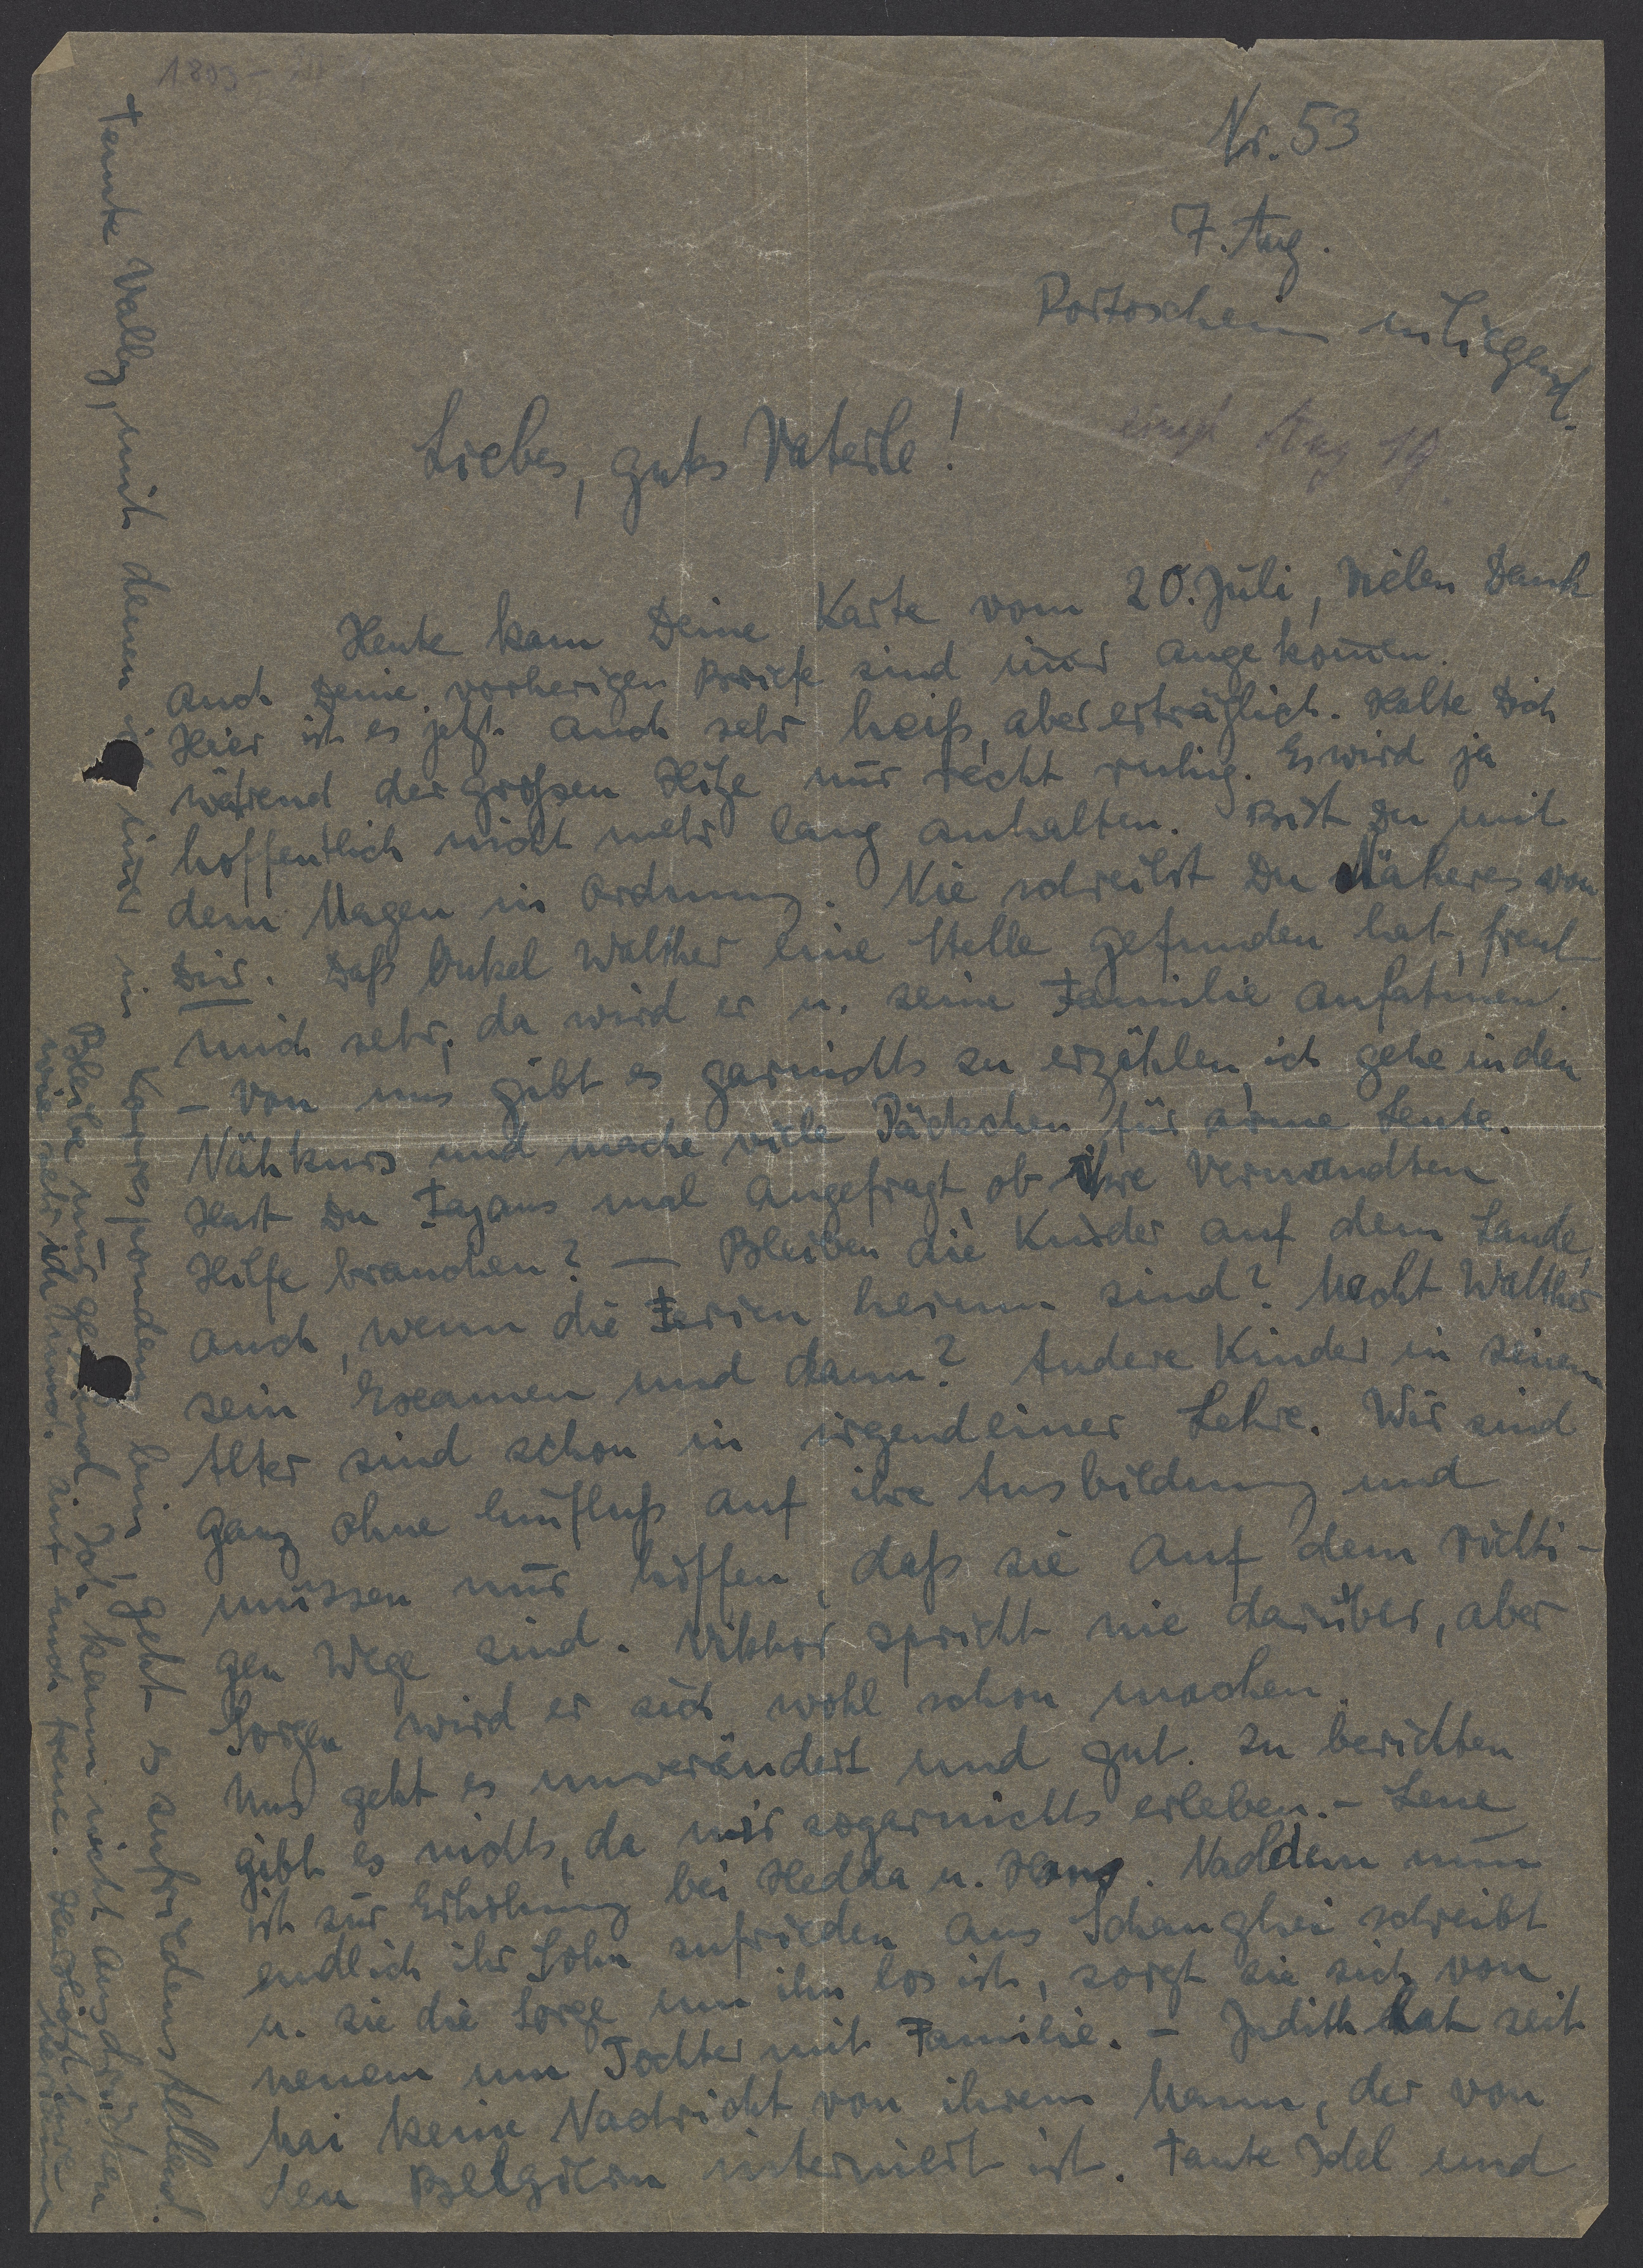 Nr. 53
7. Aug.
Portoschein inliegend.
empf. Aug 19
Liebes, gutes Vaterle!
Heute kam Deine Karte vom 20. Juli, vielen Dank
auch Deine vorherigen Briefe sind immer angekommen.
Hier ist es jetzt auch sehr heiß, aber erträglich. Halte Dich
während der großen Hitze nur recht ruhig. Es wird ja
hoffentlich nicht mehr lang anhalten. Bist Du mit
dem Magen in Ordnung. Nie schreibst Du Näheres von
Dir. Daß Onkel Walther eine Stelle gefunden hat, freut
mich sehr, da wird er u. seine Familie aufatmen.
- Von uns gibt es garnichts zu erzählen, ich gehe in den
Nähkurs und mache viele Päckchen für arme Leute.
Hast Du Fajans mal angefragt, ob ihre Verwandten
Hilfe brauchen? — Bleiben die Kinder auf dem Lande,
auch, wenn die Ferien herum sind? Macht Walther
sein Examen und dann? Andere Kinder in seinem
Alter sind schon in irgendeiner Lehre. Wir sind
ganz ohne Einfluß auf ihre Ausbildung und
müssen nur hoffen, daß sie auf dem richti-
gen Wege sind. Viktor spricht nie darüber, aber
Sorgen wird er sich wohl schon machen.
Uns geht es unverändert und gut. Zu berichten
gibt es nichts, da wir sogarnichts erleben. - Lene
ist zur Erholung bei Hedda u. Hans. Nachdem nun
endlich ihr Sohn zufrieden aus Schanghei schreibt
u. sie die Sorge um ihn los ist, sorgt sie sich von
neuem um Tochter mit Familie. - Judith hat seit
Mai keine Nachricht von ihrem Mann, der von
den Belgiern interniert ist. Tante Idel und
Tante Wally, mit denen ich in Korrespondenz bin, geht es zufriedenstellend.
Bleibe nur gesund, ich kann nicht ausdrücken
wie sehr ich Euch treue. Herzlichst Eure